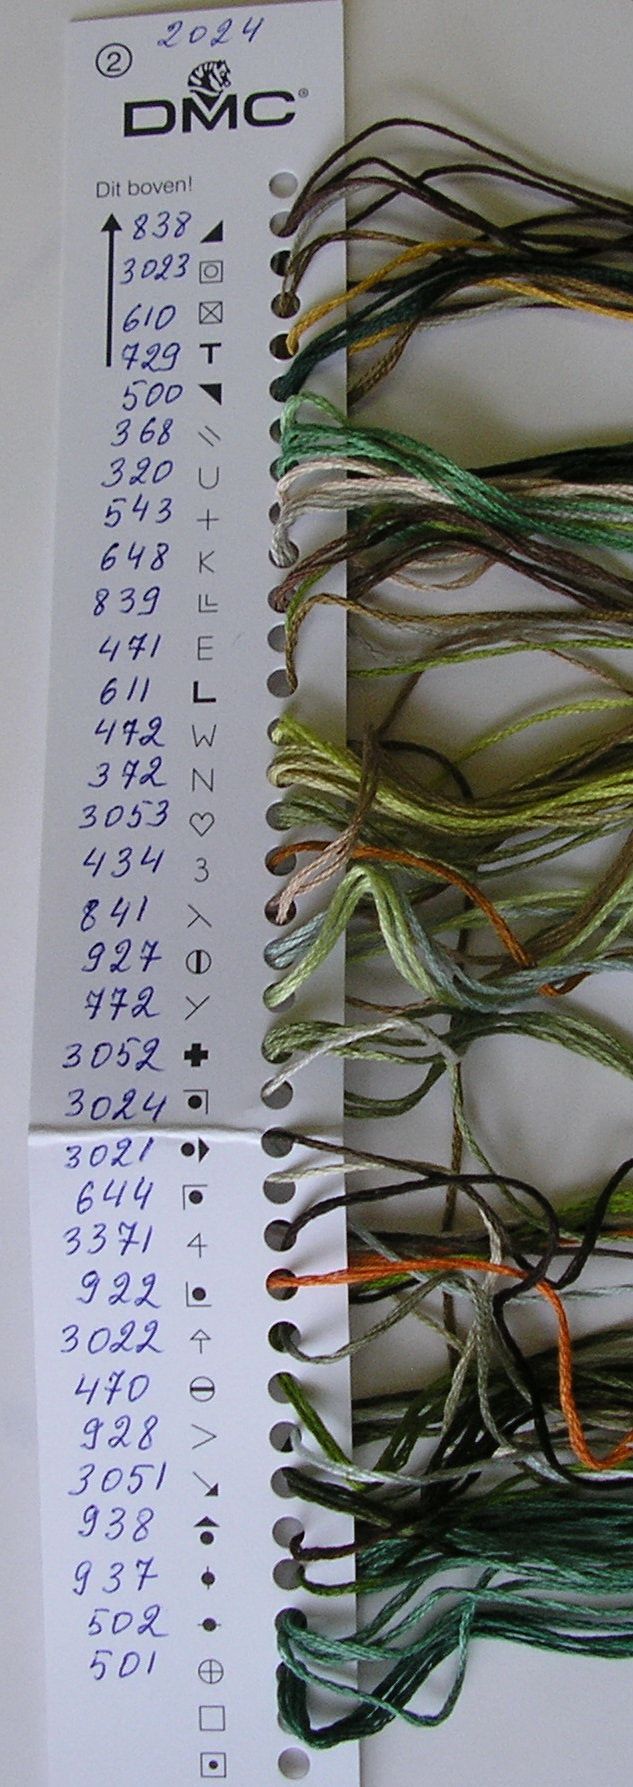 2024
2
DMC®
Dit boven!
838
3023
610
729 T
500
368
320 U
543 +
648 K
839
471 E
611 L
472 W
372 N
3053 ♡
434 3
841
927
772 Y
3052
3024
3021
644
3371 4
922
3022
470
928 >
3051
938
937
502
501